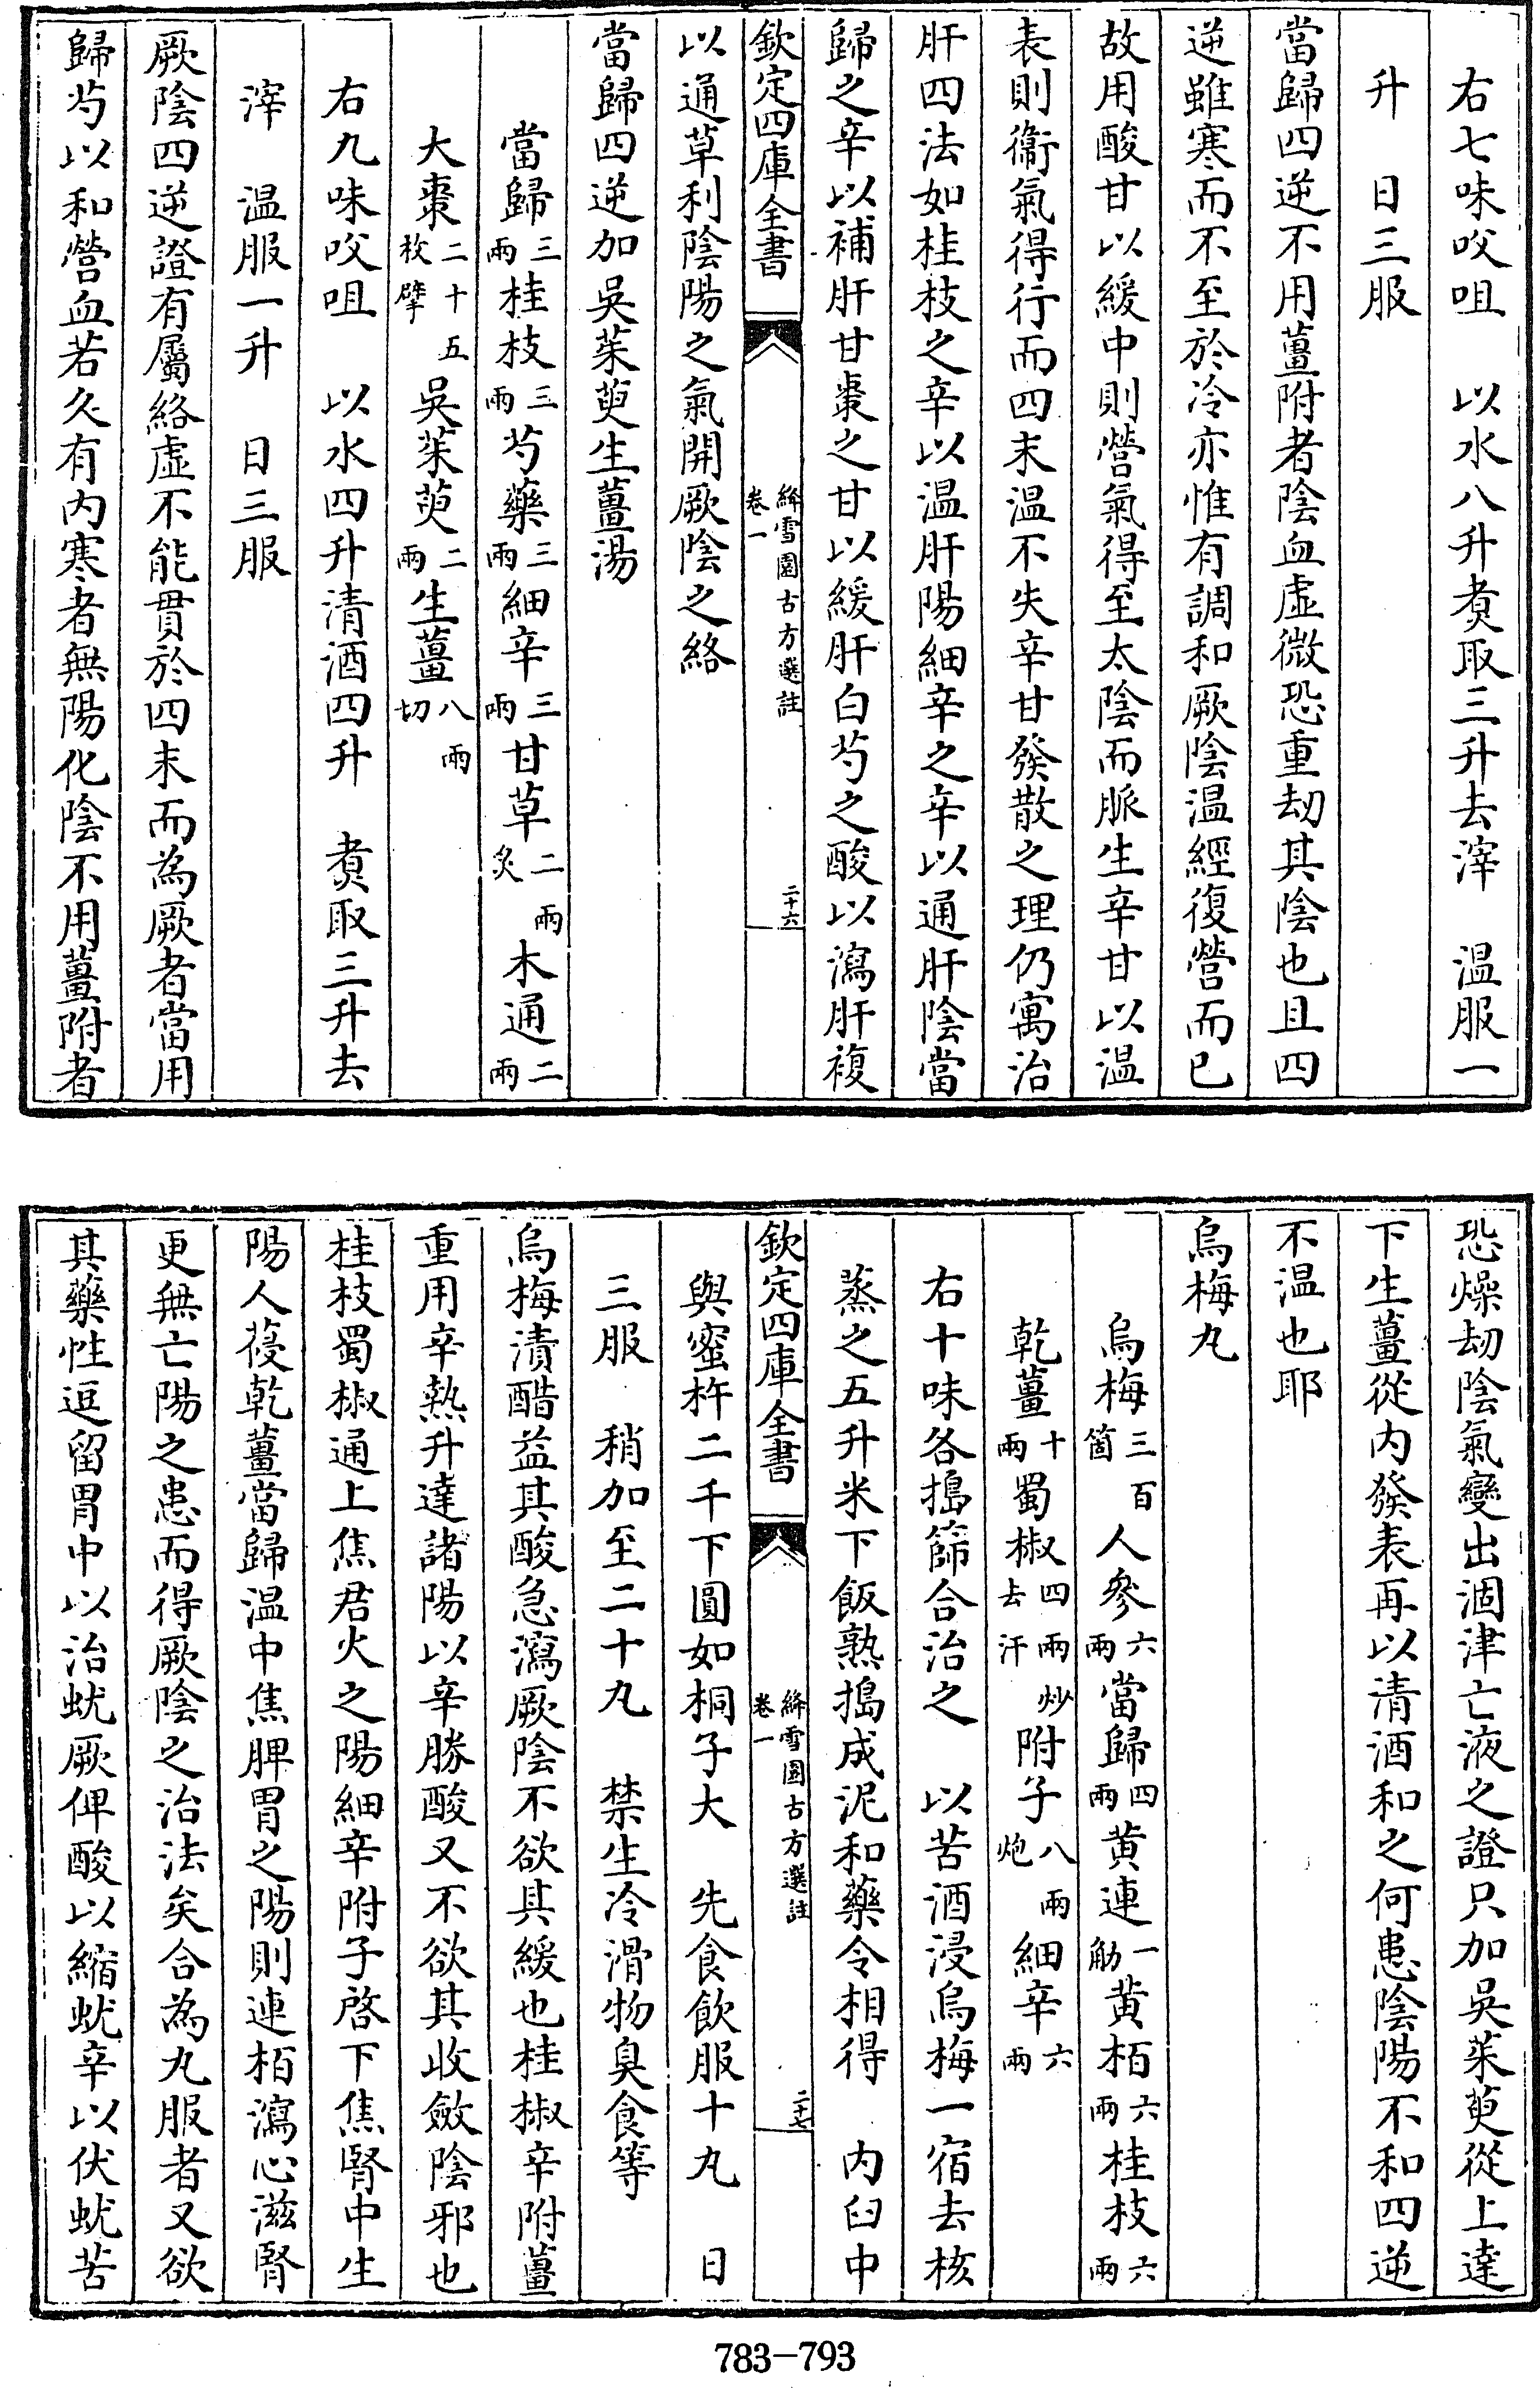 右七味㕮咀　以水八升煑取三升去滓　温服一
升　日三服
當歸四逆不用薑附者陰血虛微恐重劫其陰也且四
逆雖寒而不至於冷亦惟有調和厥陰温經復營而已
故用酸甘以緩中則營氣得至太陰而脈生辛甘以温
表則衞氣得行而四末温不失辛甘發散之理仍寓治
肝四法如桂枝之辛以温肝陽細辛之辛以通肝陰當
歸之辛以補肝甘棗之甘以緩肝白芍之酸以瀉肝複
欽定四庫全書　絳雪園古方選註卷一　二十六
以通草利陰陽之氣開厥陰之絡
當歸四逆加吳茱萸生薑湯
當歸三兩桂枝三兩芍藥三兩細辛三兩甘草二兩炙木通二兩
大棗二十五枚擘吳茱萸二兩生薑八兩切
右九味㕮咀　以水四升清酒四升　煑取三升去
滓　温服一升　日三服
厥陰四逆證有屬絡虛不能貫於四末而為厥者當用
歸芍以和營血若久有内寒者無陽化陰不用薑附者
恐燥劫陰氣變出涸津亡液之證只加吳茱萸從上達
下生薑從内發表再以清酒和之何患陰陽不和四逆
不温也耶
烏梅丸
烏梅三百箇人參六兩當歸四兩黄連一觔黄栢六兩桂枝六兩
乾薑十兩蜀椒四兩炒去汗附子八兩炮細辛六兩
右十味各搗篩合治之　以苦酒浸烏梅一宿去核
蒸之五升米下飯熟搗成泥和藥令相得　内臼中
欽定四庫全書　絳雪園古方選註卷一　二十七
與蜜杵二千下圓如桐子大　先食飲服十丸　日
三服　稍加至二十丸　禁生冷滑物臭食等
烏梅漬醋益其酸急瀉厥陰不欲其緩也桂椒辛附薑
重用辛熱升達諸陽以辛勝酸又不欲其收斂陰邪也
桂枝蜀椒通上焦君火之陽細辛附子啓下焦腎中生
陽人葠乾薑當歸温中焦脾胃之陽則連栢瀉心滋腎
更無亡陽之患而得厥陰之治法矣合為丸服者又欲
其藥性逗留胃中以治蚘厥俾酸以縮蚘辛以伏蚘苦
783—793